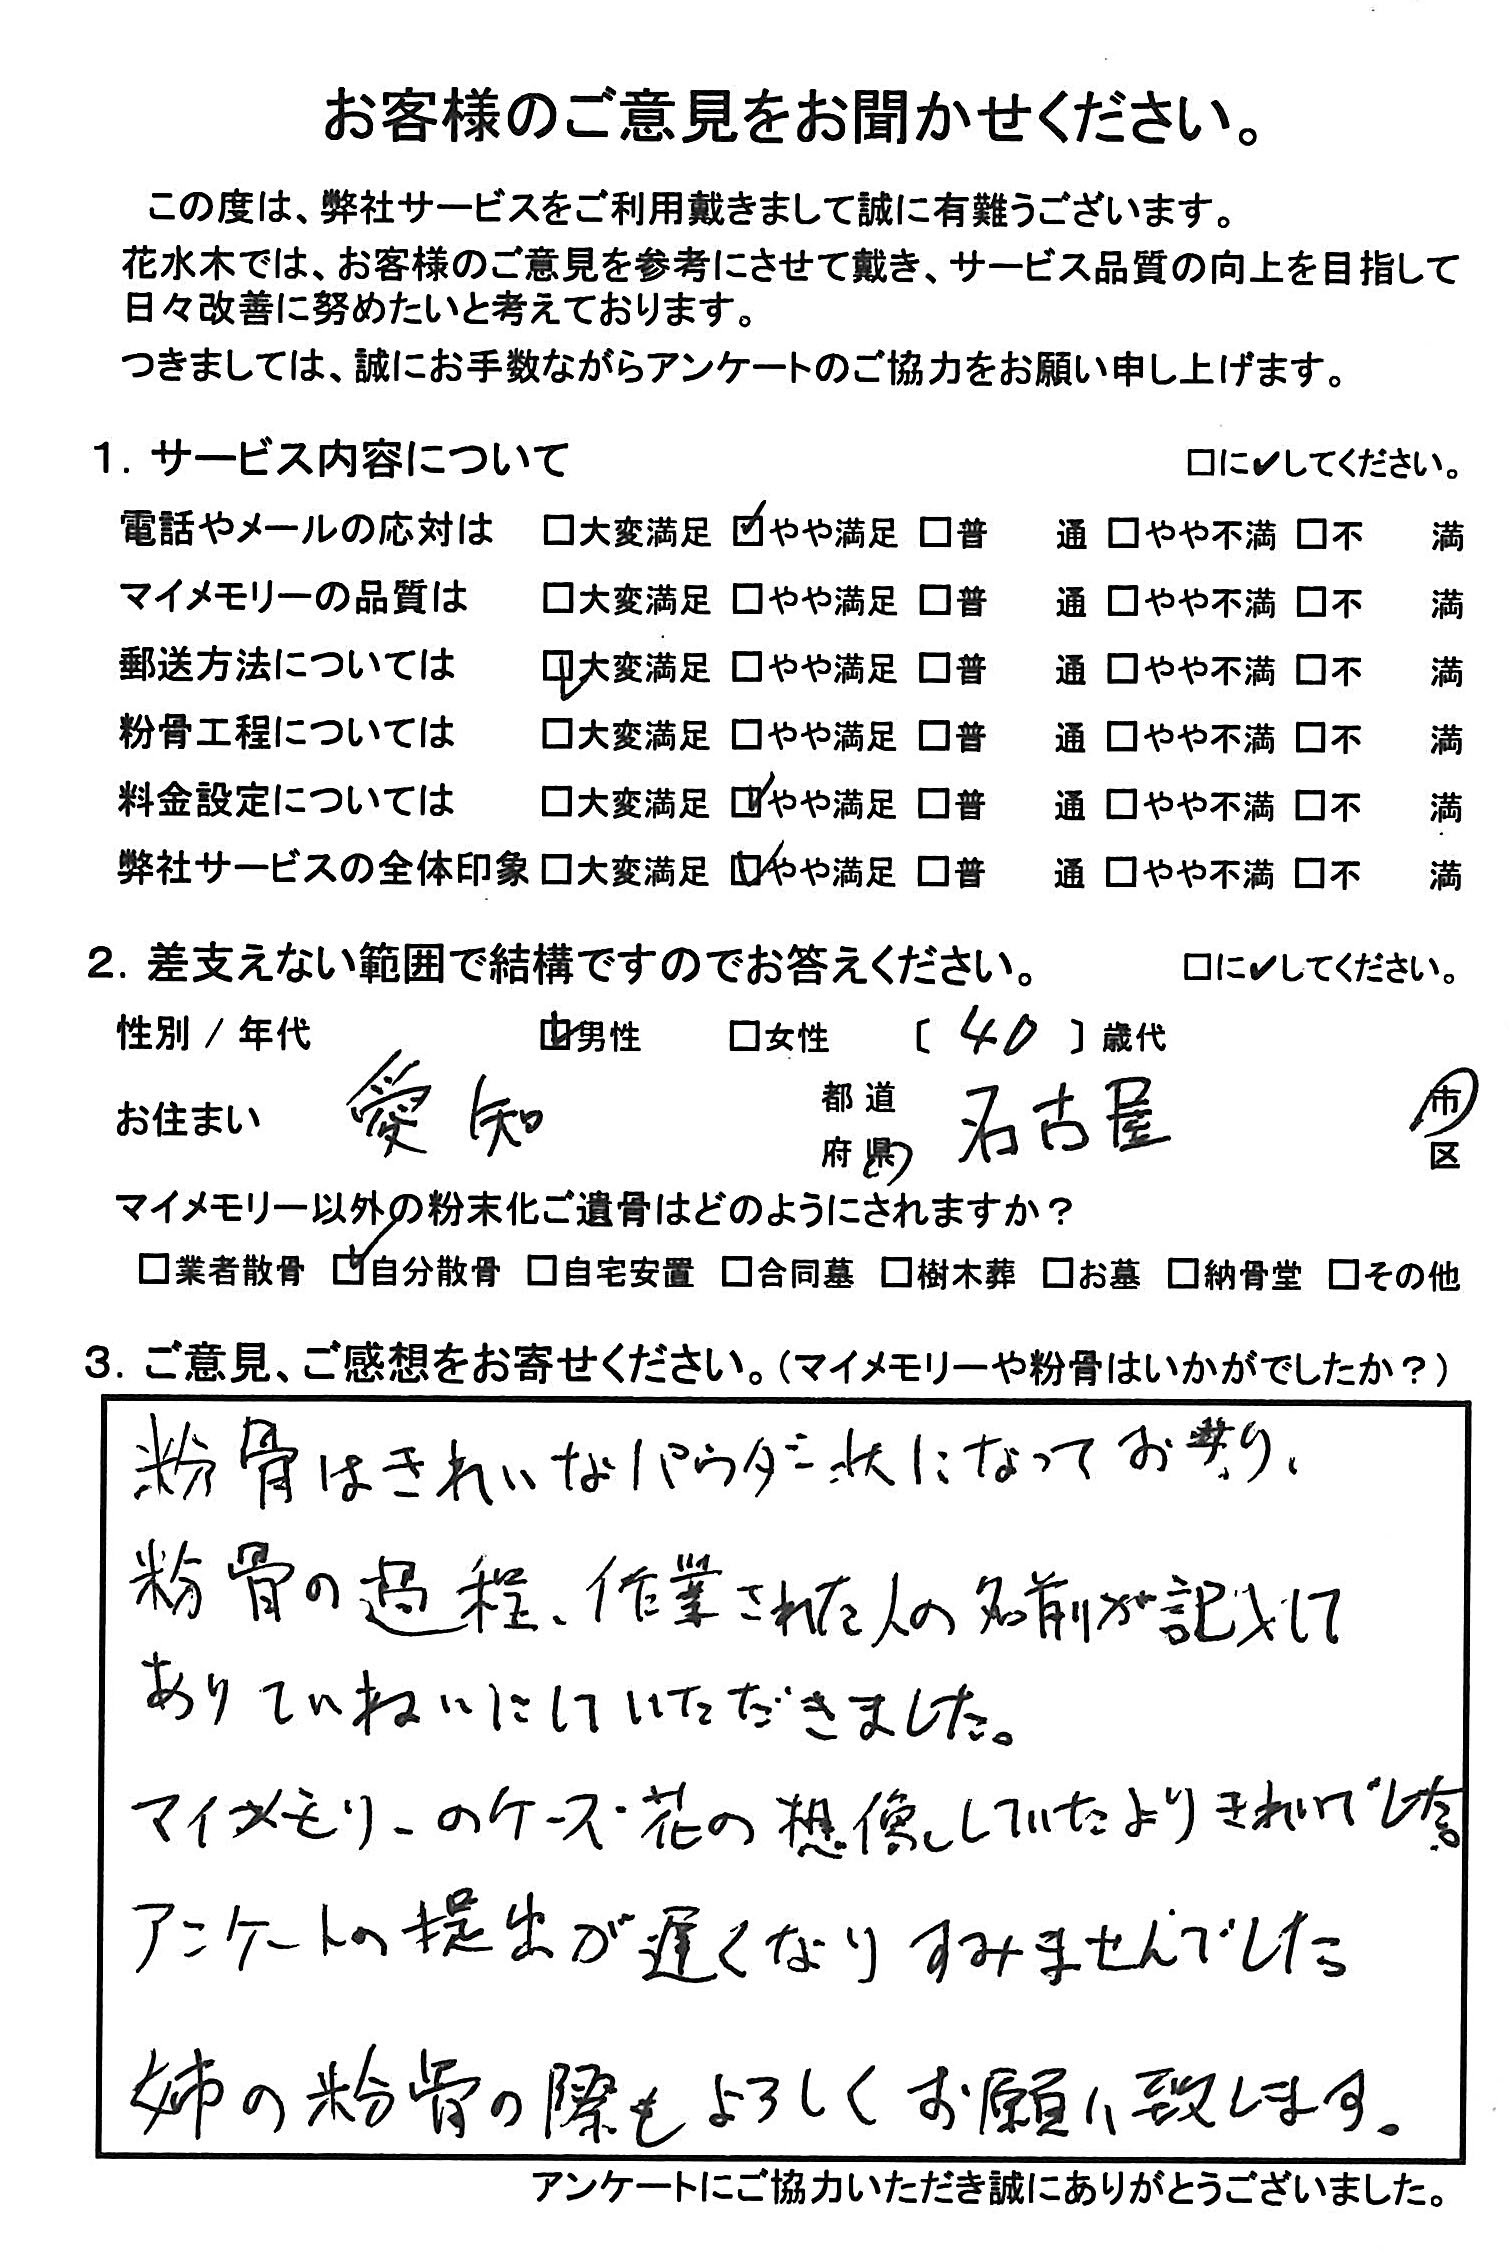 お客様のご意見をお聞かせください。
この度は、弊社サービスをご利用戴きまして誠に有難うございます。
花水木では、お客様のご意見を参考にさせて戴き、サービス品質の向上を目指して
日々改善に努めたいと考えております。
つきましては、誠にお手数ながらアンケートのご協力をお願い申し上げます。
1. サービス内容について □に✔してください。
電話やメールの応対は □大変満足 ☑やや満足 □普 通 □やや不満 □不 満
マイメモリーの品質は □大変満足 □やや満足 □普 通 □やや不満 □不 満
郵送方法については ☑大変満足 □やや満足 □普 通 □やや不満 □不 満
粉骨工程については □大変満足 □やや満足 □普 通 □やや不満 □不 満
料金設定については □大変満足 ☑やや満足 □普 通 □やや不満 □不 満
弊社サービスの全体印象 □大変満足 ☑やや満足 □普 通 □やや不満 □不 満
2. 差支えない範囲で結構ですのでお答えください。 □に✔してください。
性別 / 年代 ☑男性 □女性 〔 40 〕歳代
お住まい 愛知 都道府県 名古屋 市区
マイメモリー以外の粉末化ご遺骨はどのようにされますか？
□業者散骨 ☑自分散骨 □自宅安置 □合同墓 □樹木葬 □お墓 □納骨堂 □その他
3. ご意見、ご感想をお寄せください。（マイメモリーや粉骨はいかがでしたか？）
粉骨はきれいなパウダー状になってお り、
粉骨の過程、作業された人の名前が記 して
ありていねいにしていただきました。
マイメモリーのケース・花の想像していたよりきれいでした。
アンケートの提出が遅くなりすみませんでした
姉の粉骨の際もよろしくお願い致します。
アンケートにご協力いただき誠にありがとうございました。